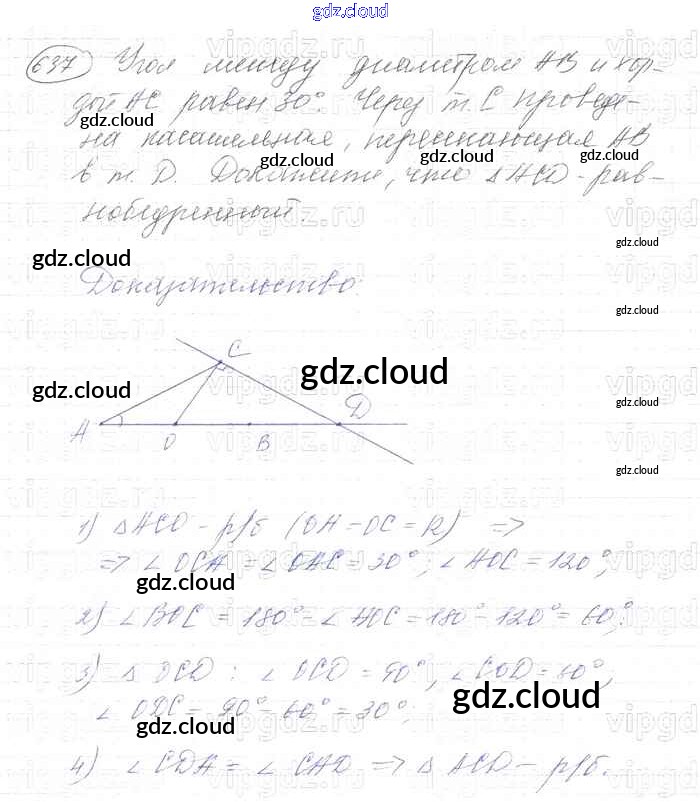 gdz.cloud
637 Угол между диаметром AB и хор-
дой AC равен 30°. Через т. C проведе-
на касательная, пересекающая AB
gdz.cloud gdz.cloud gdz.cloud gdz.cloud
в т. D. Докажите, что ΔACD - рав-
нобедренный.
gdz.cloud
gdz.cloud
Доказательство:
gdz.cloud
C
gdz.cloud
gdz.cloud
gdz.cloud
A O B D
gdz.cloud
1) ΔACO - р/б (OA = OC = R) =>
=> ∠OCA = ∠OAC = 30°; ∠AOC = 120°;
gdz.cloud
2) ∠BOC = 180° - ∠AOC = 180° - 120° = 60°;
3) Δ OCD : ∠OCD = 90°, ∠COD = 60°,
gdz.cloud
∠ODC = 90° - 60° = 30°;
gdz.cloud
4) ∠CDA = ∠CAD => Δ ACD - р/б.